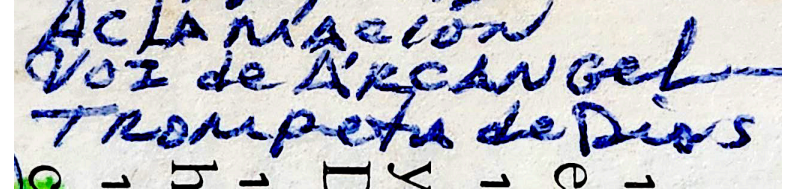 ACLAMACIÓN
VOZ de ARCANGeL
TROMPeta de Dios